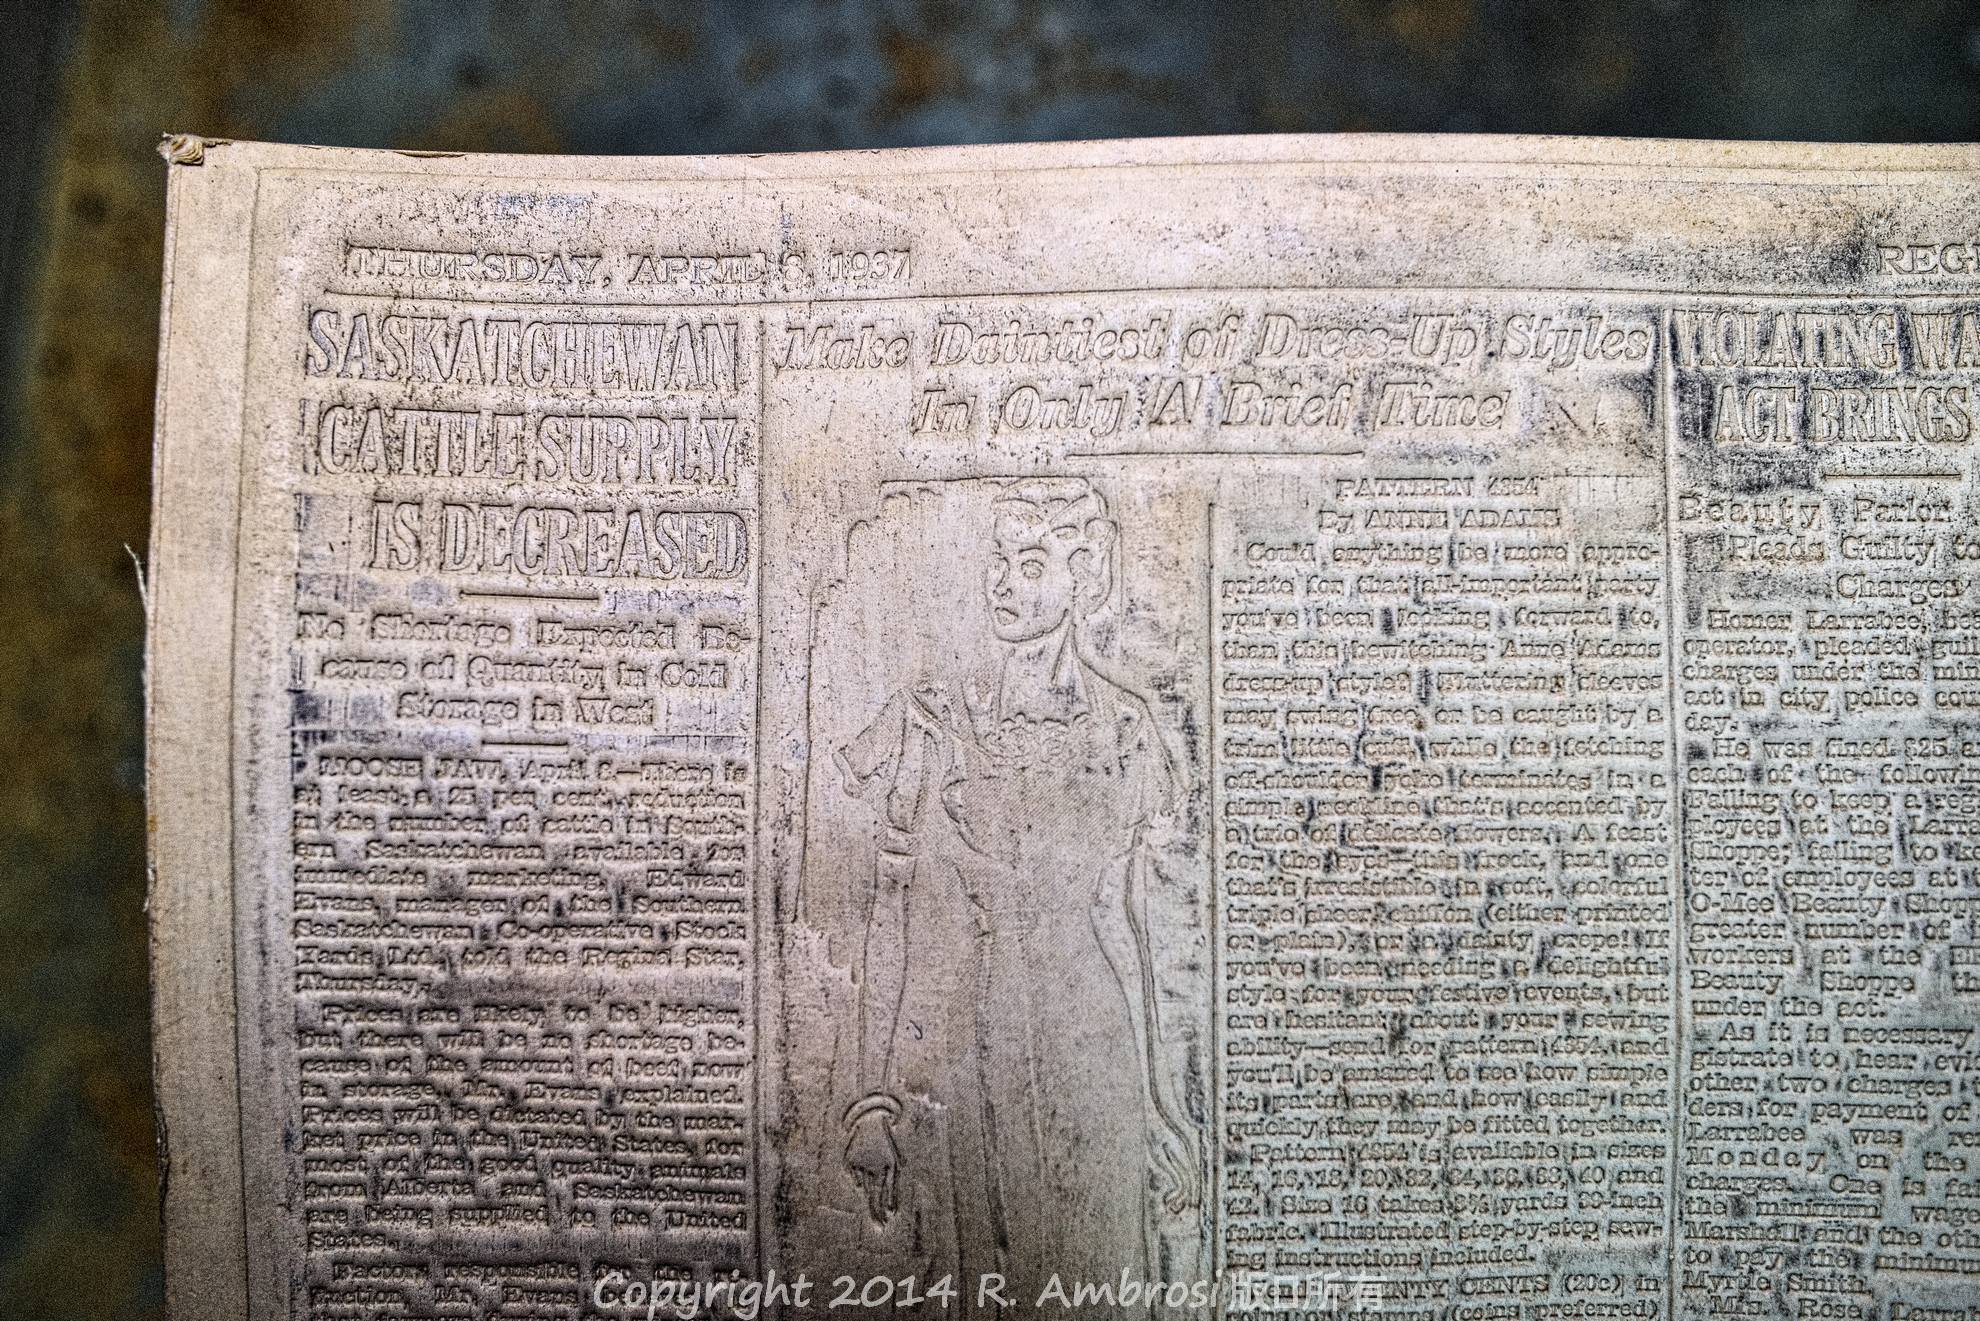 THURSDAY, APRIL 8, 1937
REG
SASKATCHEWAN
CATTLE SUPPLY
IS DECREASED
No Shortage Expected Be-
cause of Quantity in Cold
Storage in West
MOOSE JAW, April 8.—There is
at least a 25 per cent. reduction
in the number of cattle in South-
ern Saskatchewan available for
immediate marketing, Edward
Evans, manager of the Southern
Saskatchewan Co-operative Stock
Yards Ltd., told the Regina Star,
Thursday.
Prices are likely to be higher,
but there will be no shortage be-
cause of the amount of beef now
in storage, Mr. Evans explained.
Prices will be dictated by the mar-
ket price in the United States, for
most of the good quality animals
from Alberta and Saskatchewan
are being supplied to the United
States.
Factors responsible for the
Mr. Evans
Make Daintiest of Dress-Up Styles
In Only A Brief Time
PATTERN 4354
By ANNE ADAMS
Could anything be more appro-
priate for that all-important party
you've been looking forward to,
than this bewitching Anne Adams
dress-up style? Fluttering sleeves
may swing free, or be caught by a
trim little cuff, while the fetching
off-shoulder yoke terminates in a
simple neckline that's accented by
a trio of delicate flowers. A feast
for the eyes—this frock, and one
that's irresistible in soft, colorful
triple sheer, chiffon (either printed
or plain), or a dainty crepe! If
you've been needing a delightful
style for your festive events, but
are hesitant about your sewing
ability—send for pattern 4354, and
you'll be amazed to see how simple
its parts are, and how easily and
quickly they may be fitted together.
Pattern 4354 is available in sizes
14, 16, 18, 20, 32, 34, 36, 38, 40 and
42. Size 16 takes 3¾ yards 39-inch
fabric. Illustrated step-by-step sew-
ing instructions included.
CENTS (20c) in
(coins preferred)
VIOLATING WA
ACT BRINGS
Beauty Parlor
Pleads Guilty to
Charges
Homer Larrabee, bea
operator, pleaded guil
charges under the min
act in city police cou
day.
He was fined $25 a
each of the followin
Failing to keep a reg
ployees at the Larra
Shoppe; failing to ke
ter of employees at t
O-Mee Beauty Shop
greater number of
workers at the
Beauty Shoppe th
under the act.
As it is necessary
gistrate to hear evi
other two charges
ders for payment of
Larrabee was re
Monday on the
charges. One is fa
the minimum wage
Marshall and the oth
to pay the minimu
Myrtle Smith.
Mrs. Rose Larra
Copyright 2014 R. Ambrosi 版权所有